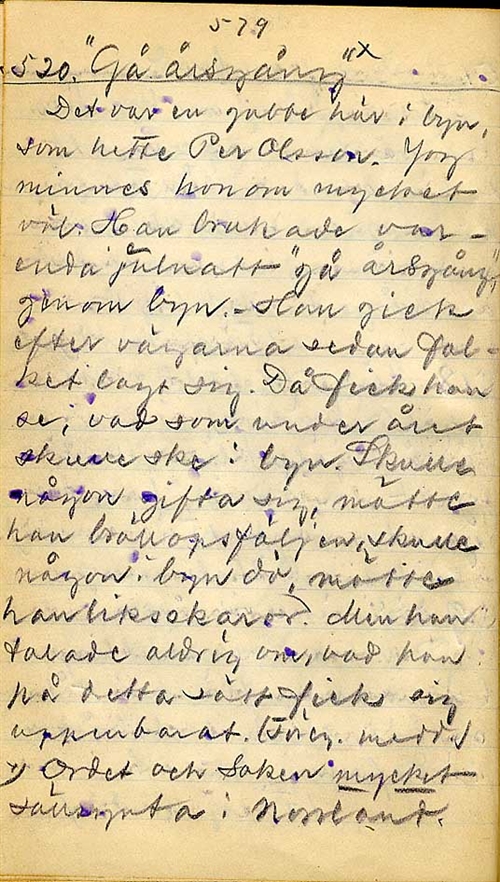 579
520. "Gå årsgång" x
Det var en gubbe här i byn,
som hette Per Olsson. Jag
minnes honom mycket
väl. Han brukade var-
enda julnatt "gå årsgång"
genom byn. - Han gick
efter vägarna sedan fol-
ket lagt sig. Då fick han
se, vad som under året
skulle ske i byn. Skulle
någon gifta sig, mötte
han bröllopsföljen, skulle
någon i byn dö, mötte
han likskaror. Men han
talade aldrig om, vad han
på detta sätt fick sig
uppenbarat. (Föreg. medd.)
x) Ordet och saken mycket
sällsynta i Norrland.